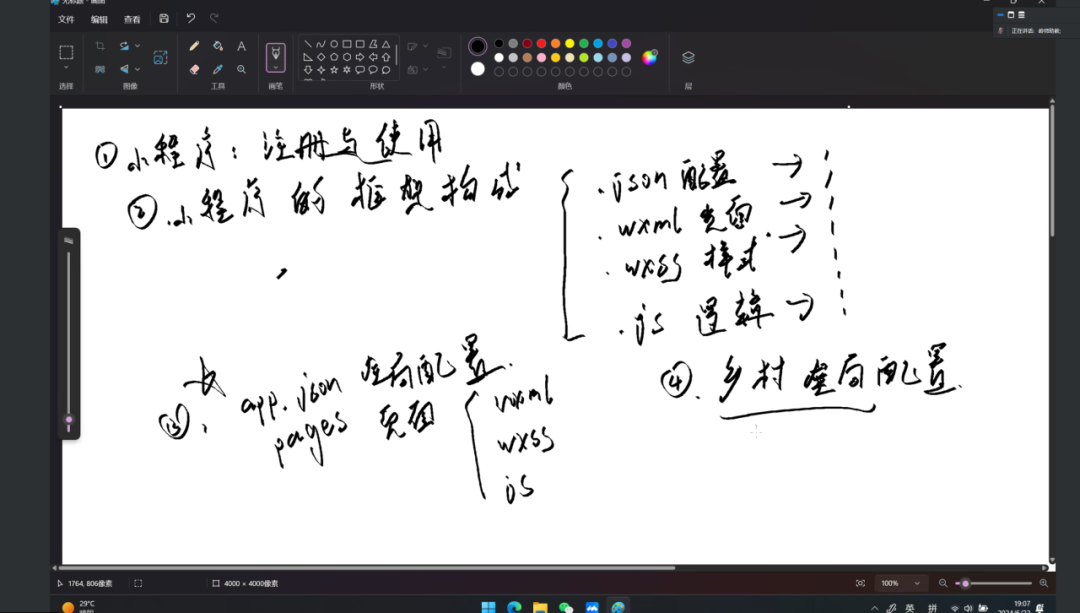 无标题 - 画图
文件 编辑 查看
选择 图像 工具 画笔 形状 颜色 层
①小程序:注册与使用
②.小程序的框架构成
.json 配置 →
.wxml 页面 →
.wxss 样式 →
.js 逻辑 →
③. app.json 全局配置.
pages 页面
wxml
wxss
js
④. 乡村全局配置.
1764, 806像素
4000 × 4000像素
100%
29°C
英 拼
19:07